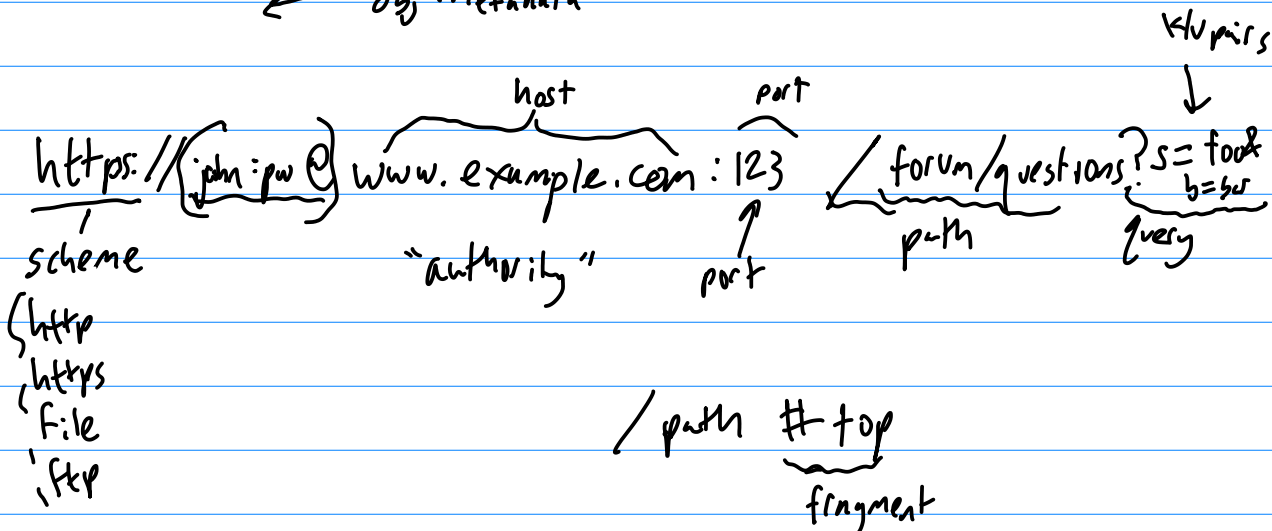 metadata
k/v pairs
host port
https://(john:pw@) www.example.com:123 /forum/questions?s=foo&
b=bar
scheme "authority" port path query
http
https
file
ftp
/path #top
fragment